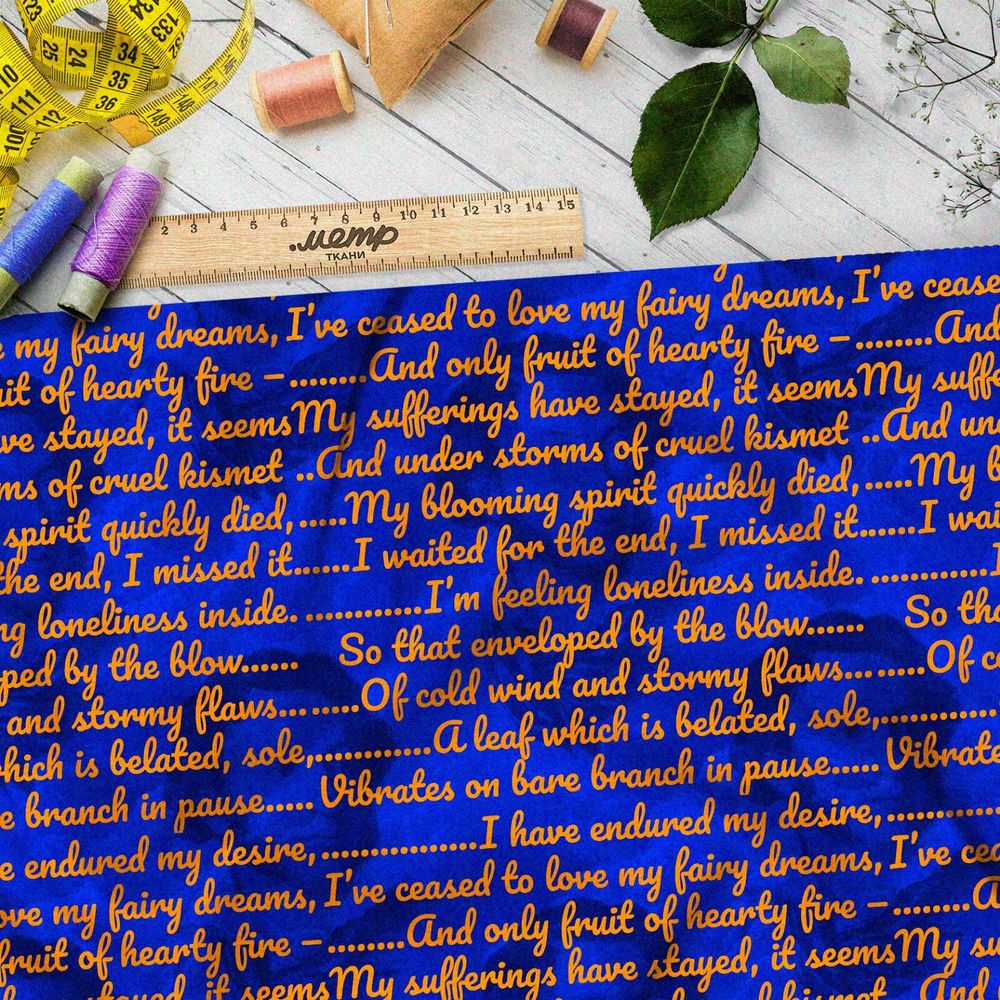 25 24
34
35
36
133
134
110
111
112
100
148
149
2 3 4 5 6 7 8 9 10 11 12 13 14 15
.метр
ТКАНИ
my fairy dreams, I've ceased to love my fairy dreams, I've cease
uit of hearty fire – ........And only fruit of hearty fire – ........And
ve stayed, it seemsMy sufferings have stayed, it seemsMy suffe
ms of cruel kismet ..And under storms of cruel kismet ..And un
spirit quickly died,.....My blooming spirit quickly died,.....My b
the end, I missed it......I waited for the end, I missed it......I wai
ng loneliness inside. ............I'm feeling loneliness inside. ............I
ped by the blow...... So that enveloped by the blow...... So tha
and stormy flaws.........Of cold wind and stormy flaws.........Of c
hich is belated, sole,............A leaf which is belated, sole,............
e branch in pause.....Vibrates on bare branch in pause.....Vibrate
e endured my desire,................I have endured my desire,............
ove my fairy dreams, I've ceased to love my fairy dreams, I've cea
fruit of hearty fire – ........And only fruit of hearty fire – ........A
stayed, it seemsMy sufferings have stayed, it seemsMy su
kismet ..And